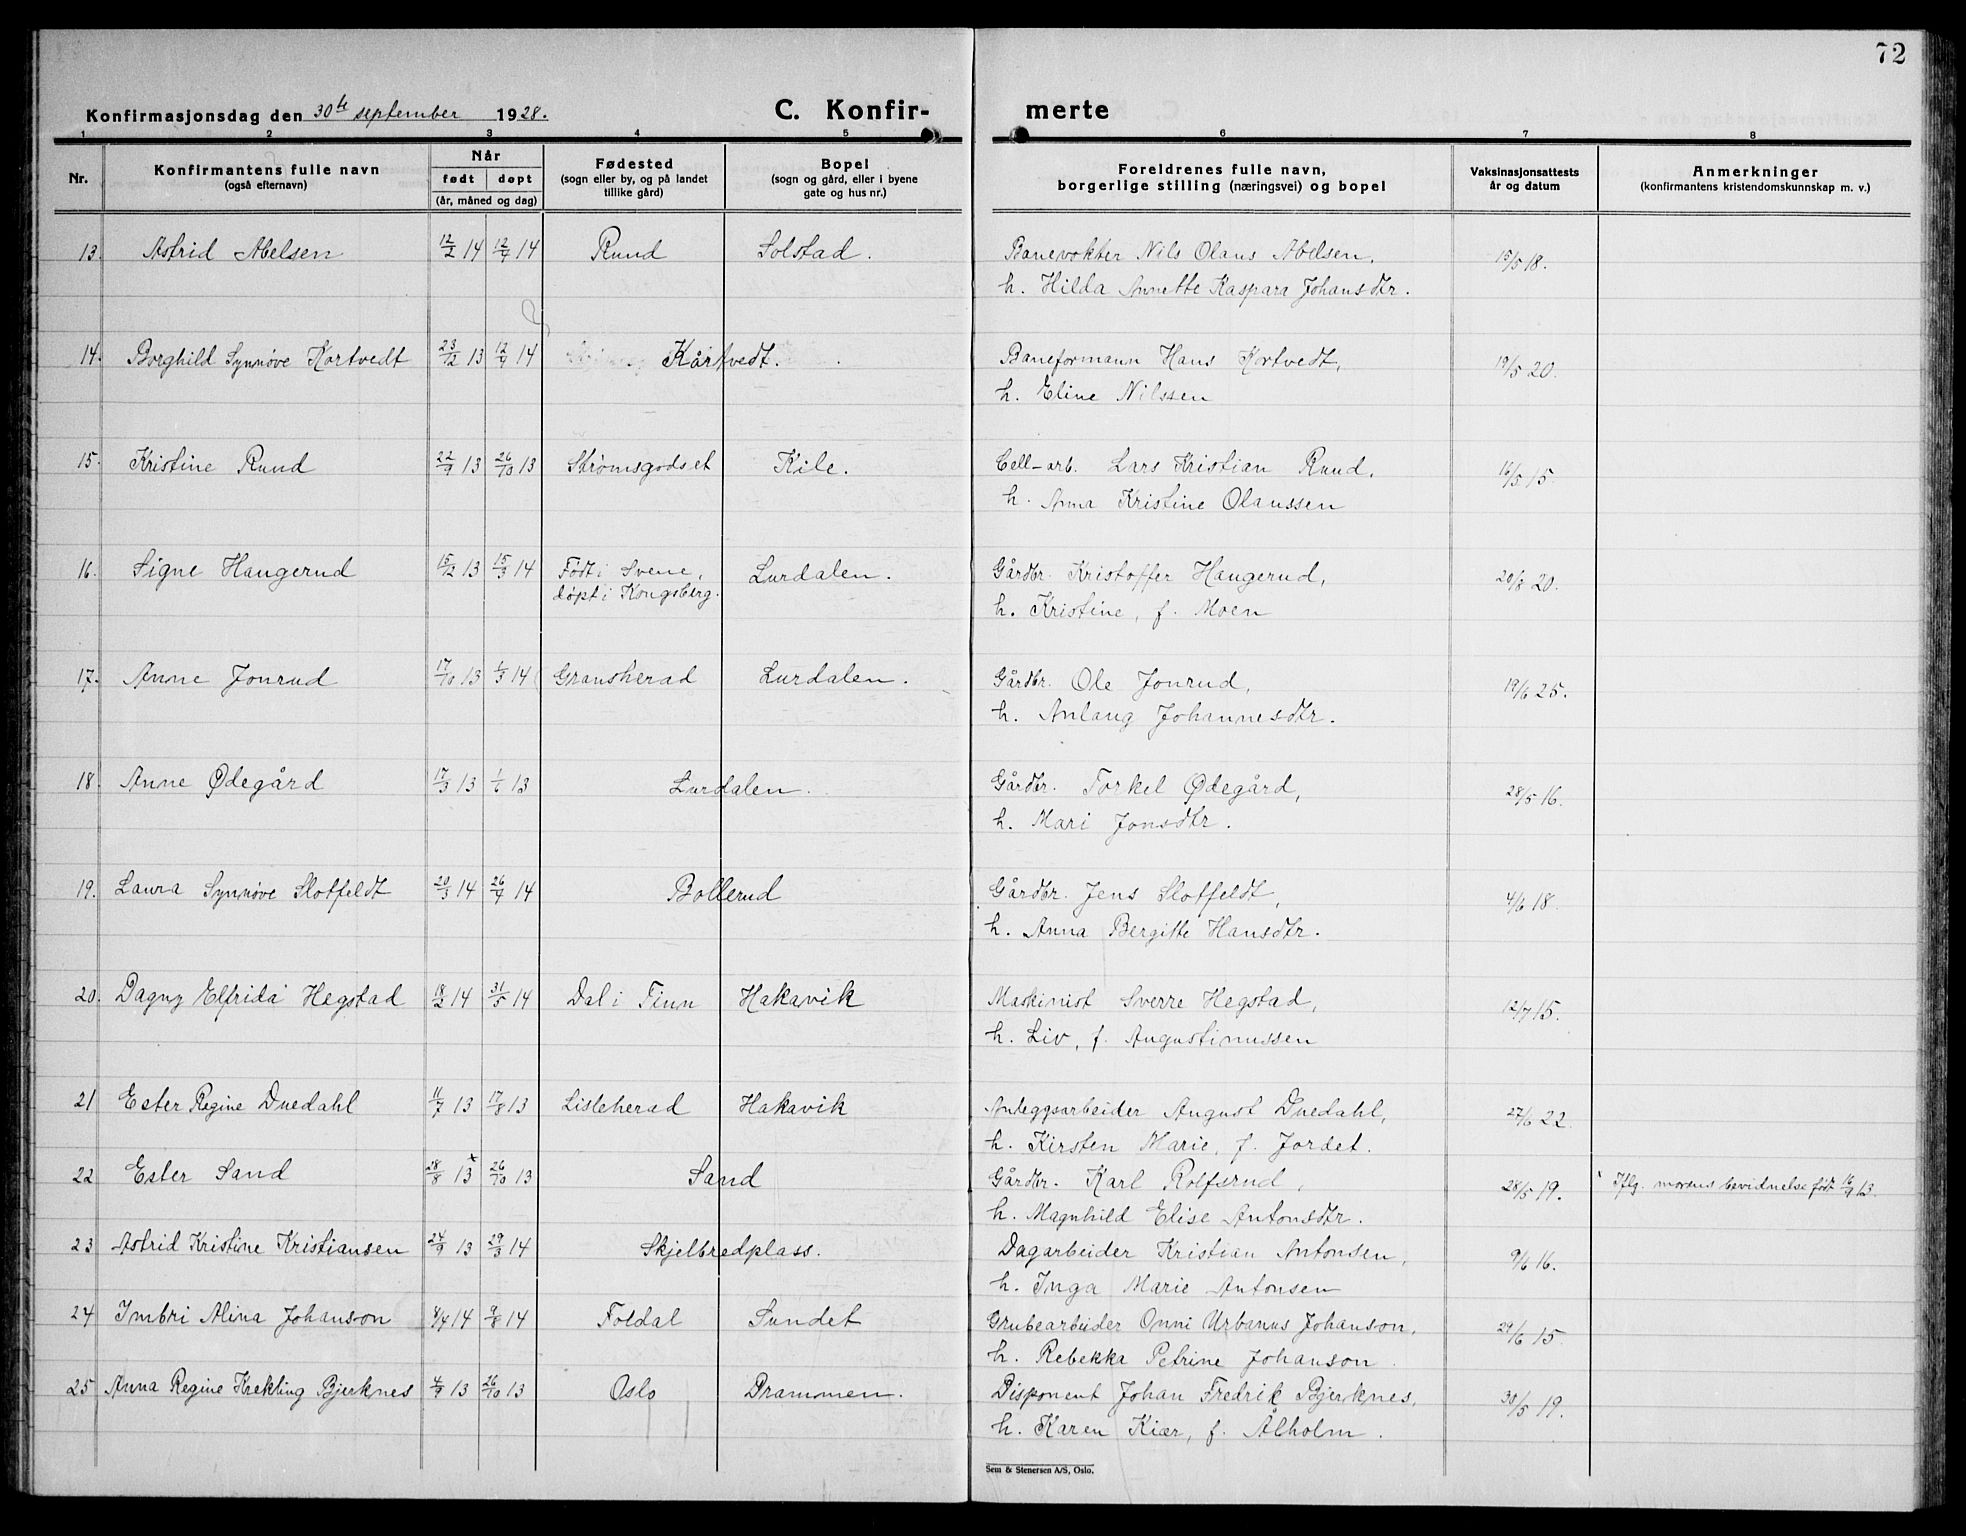 72
Konfirmasjonsdag den 30te september 1928.
C. Konfirmerte
1 2 3 4 5 6 7 8
Nr.
Konfirmantens fulle navn
(også efternavn)
Når
født døpt
(år, måned og dag)
Fødested
(sogn eller by, og på landet
tillike gård)
Bopel
(sogn og gård, eller i byene
gate og hus nr.)
Foreldrenes fulle navn,
borgerlige stilling (næringsvei) og bopel
Vaksinasjonsattests
år og datum
Anmerkninger
(konfirmantens kristendomskunnskap m. v.)
13. Astrid Abelsen 12/2 14 12/4 14 Ruud Solstad. Banevokter Nils Olaus Abelsen, 15/5 18.
h. Hilda Annette Kaspara Johansdtr.
14. Borghild Synnøve Kortvedt 23/12 13 12/4 14 Kårtvedt. Baneformann Hans Kortvedt, 19/5 20.
h. Eline Nilssen
15. Kristine Ruud 22/9 13 26/10 13 Strømsgodset Kile. Cell-arb. Lars Kristian Ruud, 16/5 15.
h. Anna Kristine Olaussen
16. Signe Haugerud 15/12 13 15/3 14 Født i Svene, Lurdalen. Gårdbr. Kristoffer Haugerud, 20/8 20.
døpt i Kongsberg.
h. Kristine, f. Moen
17. Anne Jonrud 17/10 13 1/3 14 Gransherad Lurdalen. Gårdbr. Ole Jonrud, 19/6 25.
h. Anlaug Johannesdtr.
18. Anne Ødegård 17/3 13 1/6 13 Lurdalen. Gårdbr. Torkel Ødegård, 28/5 16.
h. Mari Jonsdtr.
19. Laura Synnøve Slotfeldt 20/3 14 26/4 14 Bollerud Gårdbr. Jens Slotfeldt, 4/6 18.
h. Anna Bergitte Hansdtr.
20. Dagny Elfrida Hegstad 18/2 14 31/5 14 Dal i Tinn Hakavik Maskinist Sverre Hegstad, 12/7 15.
h. Liv, f. Augustinussen
21 Ester Regine Duedahl 11/7 13 17/8 13 Lisleherad Hakavik Anleggsarbeider August Duedahl, 27/6 22.
h. Kirsten Marie, f. Jordet.
22 Ester Sand 28/8 13 x 26/10 13 Sand Gårdbr. Karl Rolfsrud, 28/5 19. x Iflg. morens bevidnelse født 16/9 13.
h. Magnhild Elise Antonsdtr.
23 Astrid Kristine Kristiansen 24/9 13 29/3 14 Skjelbredplass. Dagarbeider Kristian Antonsen, 9/6 16.
h. Inga Marie Antonsen
24 Imbri Alina Johanson 8/4 14 9/8 14 Foldal Sundet Grubearbeider Onni Urbanus Johanson, 29/6 15
h. Rebekka Petrine Johanson.
25 Anna Regine Krekling Bjerknes 4/9 13 26/10 13 Oslo Drammen. Disponent Johan Fredrik Bjerknes, 30/5 19.
h. Karen Kiær, f. Ålholm.
Sem & Stenersen A/S, Oslo.